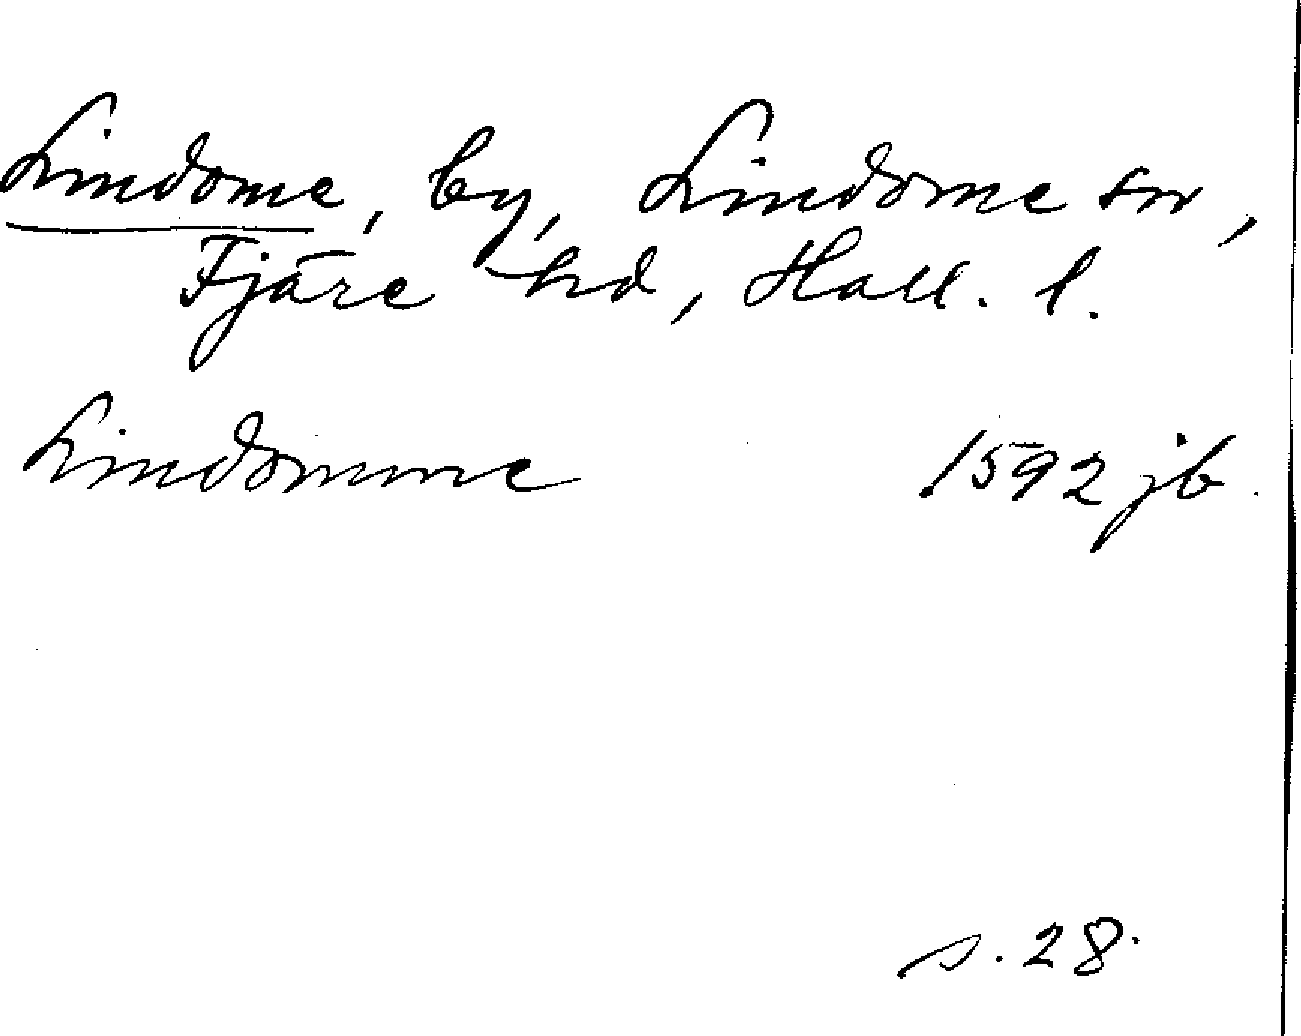 Lindome, by, Lindome sn,
Fjäre hd, Hall. l.
Lindomme 1592 jb.
s. 28.